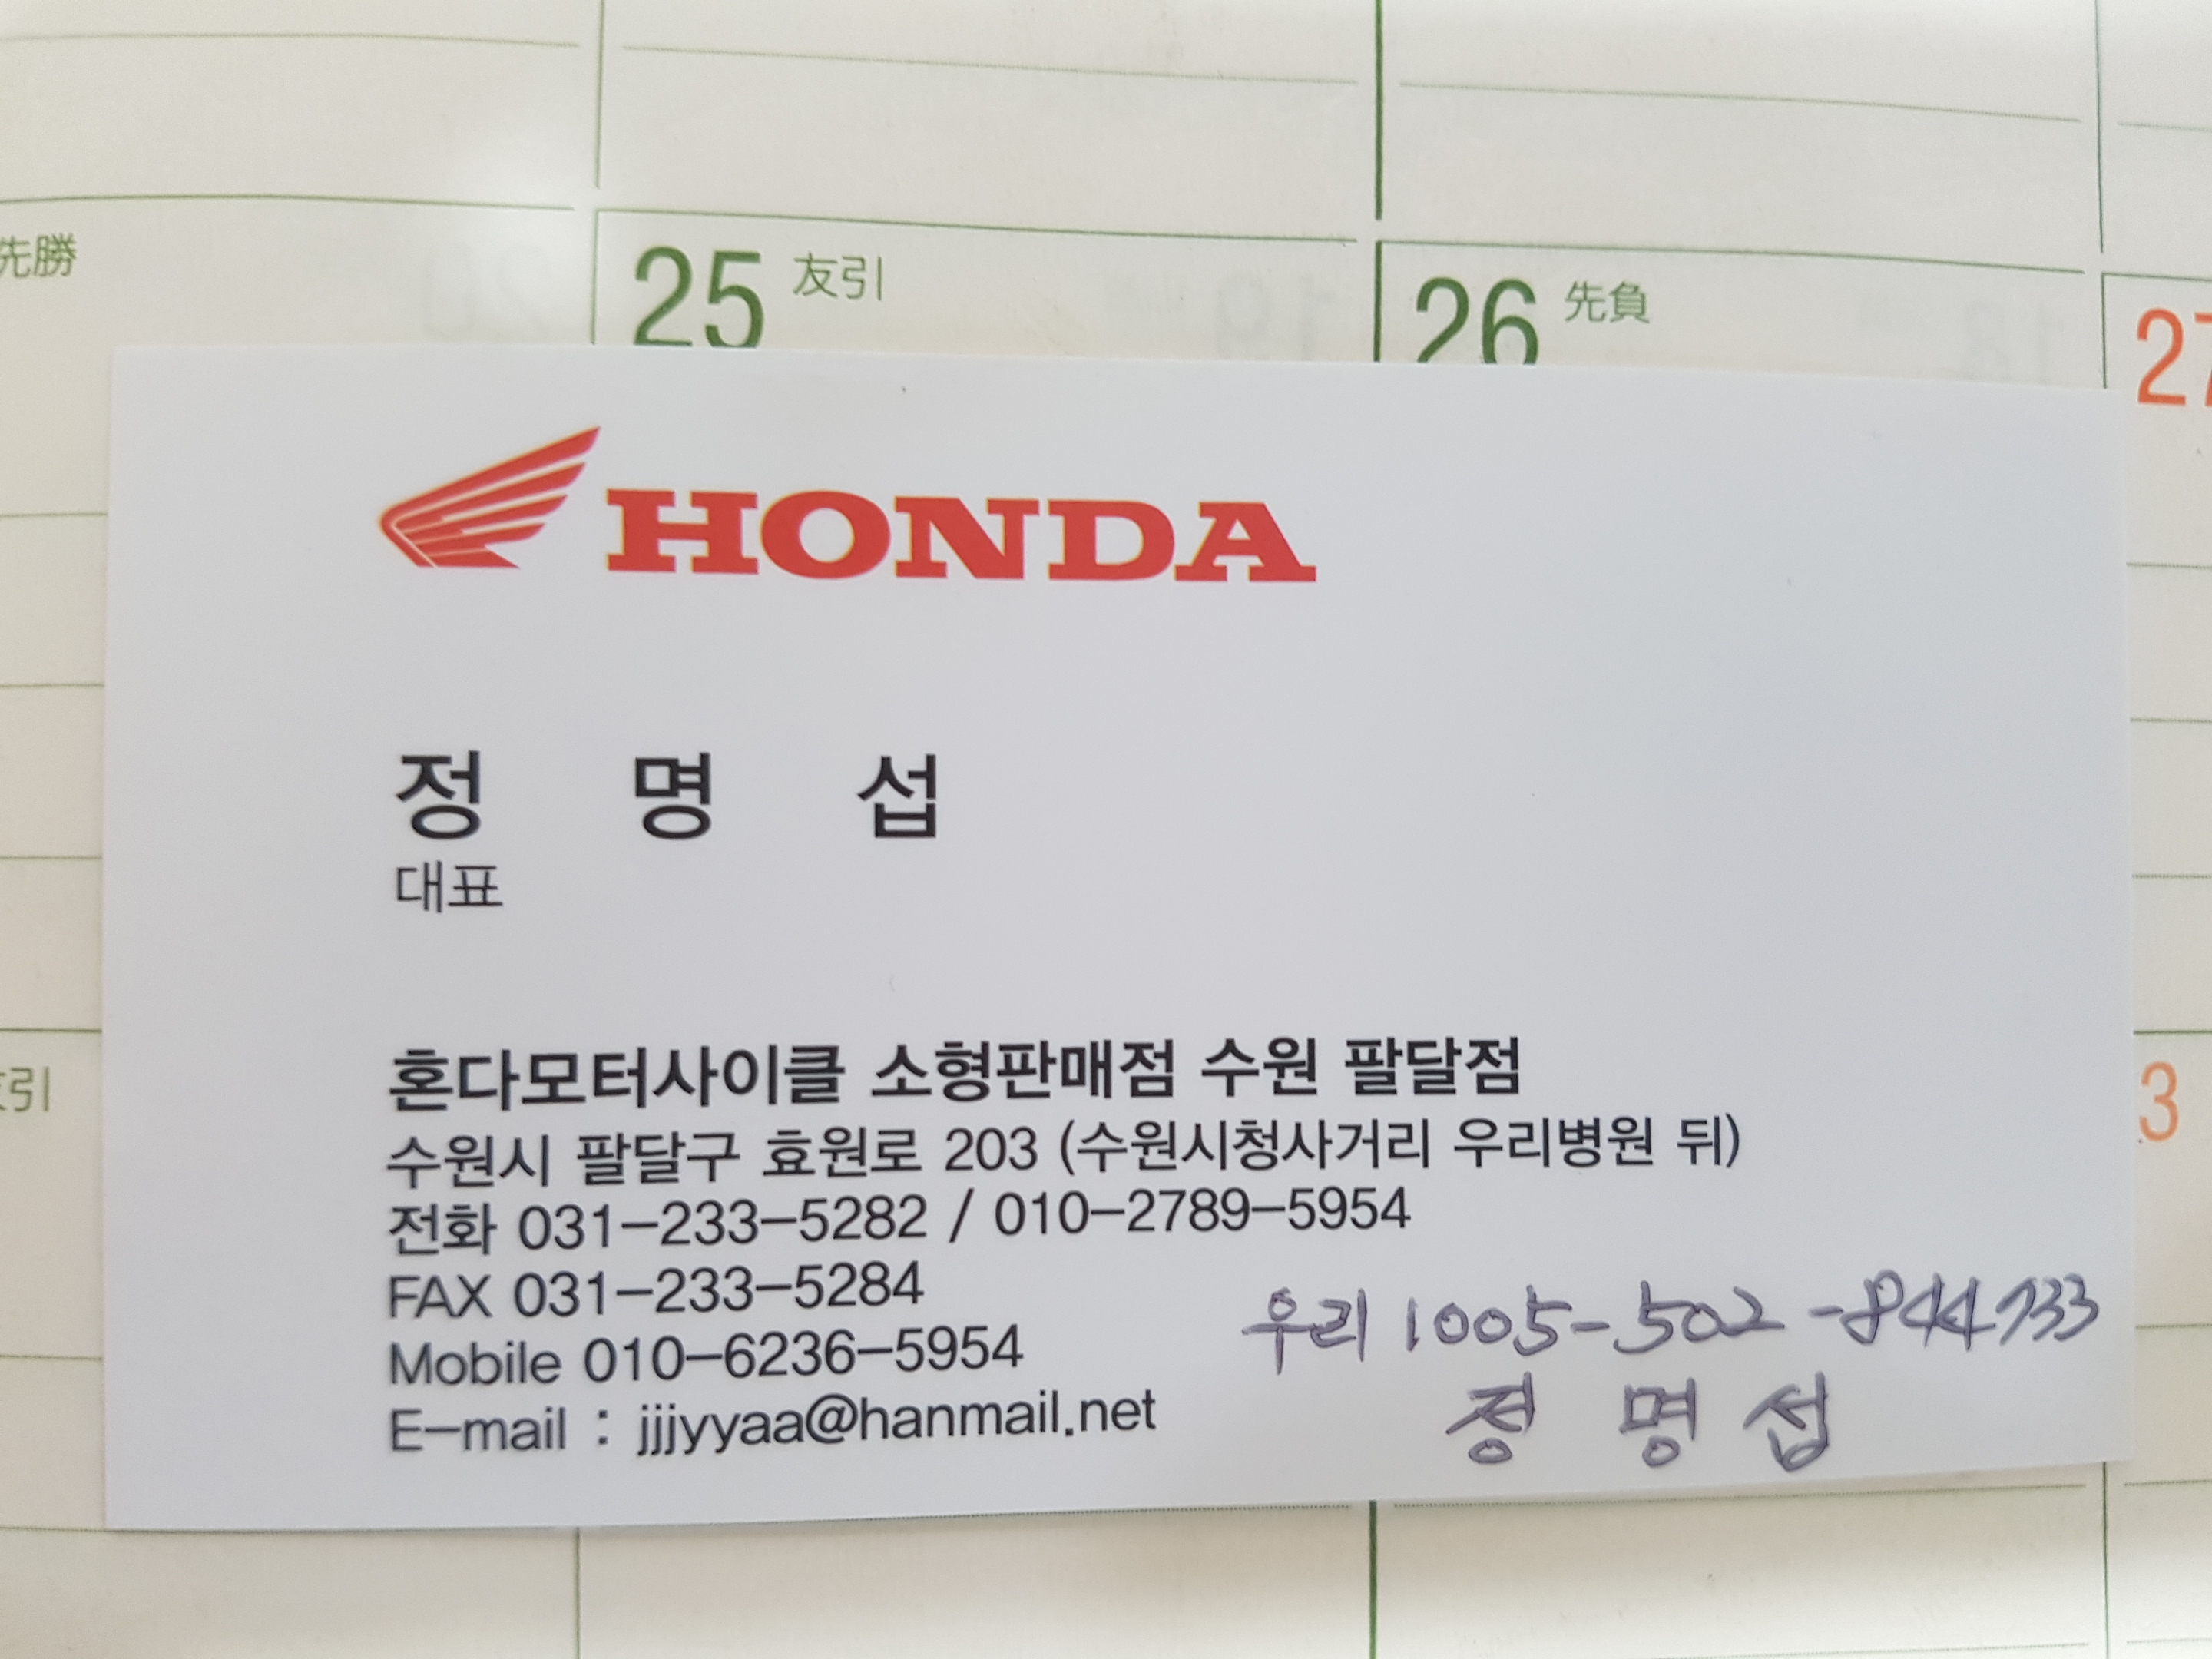 先勝
25 友引
26 先負
27
HONDA
정 명 섭
대표
혼다모터사이클 소형판매점 수원 팔달점
수원시 팔달구 효원로 203 (수원시청사거리 우리병원 뒤)
전화 031-233-5282 / 010-2789-5954
FAX 031-233-5284
Mobile 010-6236-5954
E-mail : jjjyyaa@hanmail.net
우리 1005-502-844733
정 명 섭
友引
3